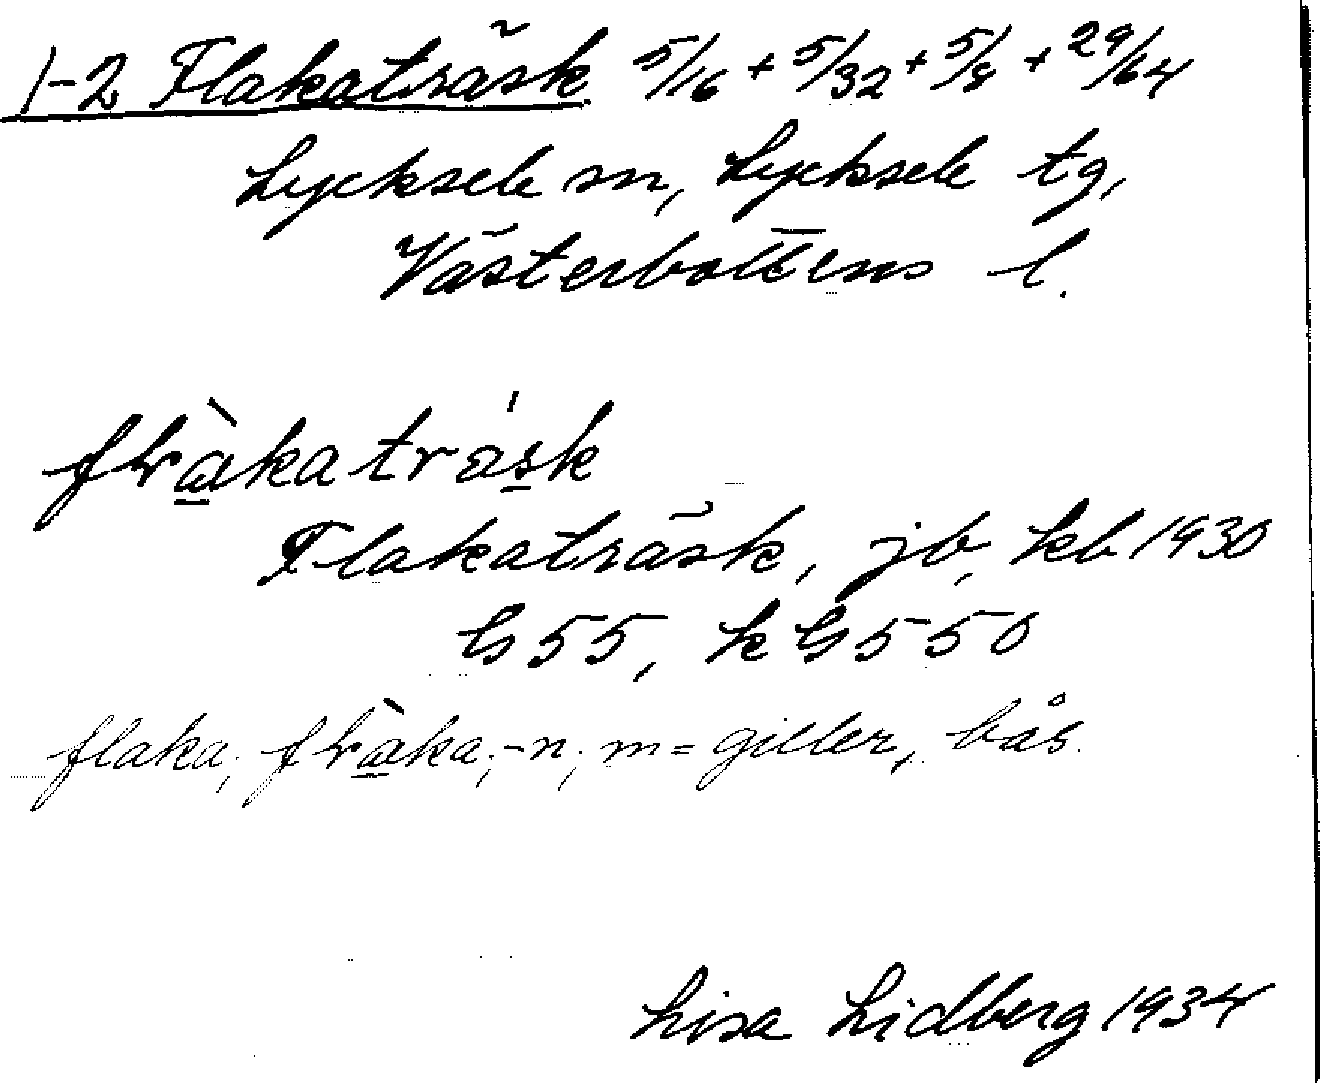 1-2 Flakaträsk 5/16 + 5/32 + 5/8 + 29/64
Lycksele sn, Lycksele tg,
Västerbottens l.
Flakaträsk, jb, kb 1930
G 55, kG 550
flaka, -n, m = giller, bås.
Lisa Lidberg 1934